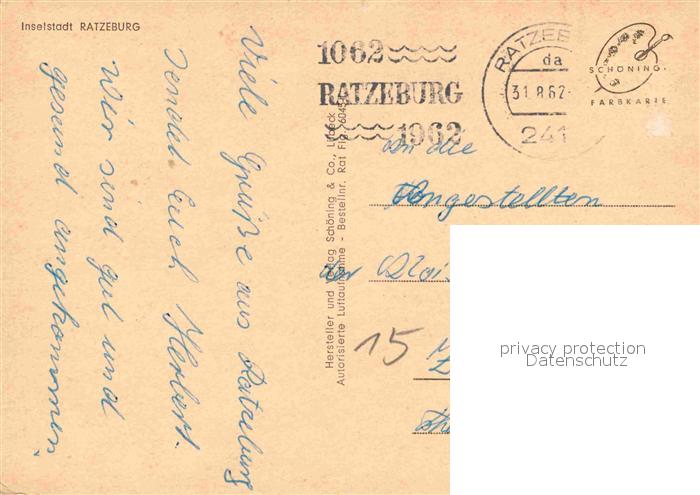 Inselstadt RATZEBURG
Viele Grüße aus Ratzeburg
sendet Euch Herbert.
Wir sind gut und
gesund angekommen.
1062
RATZEBURG
1962
RATZEB
da
31.8.62
241
SCHÖNING
FARBKARTE
Hersteller und Verlag Schöning & Co., Lübeck
Autorisierte Luftaufnahme - Bestellnr. Rat Flg
An die
Angestellten
der
15
privacy protection
Datenschutz